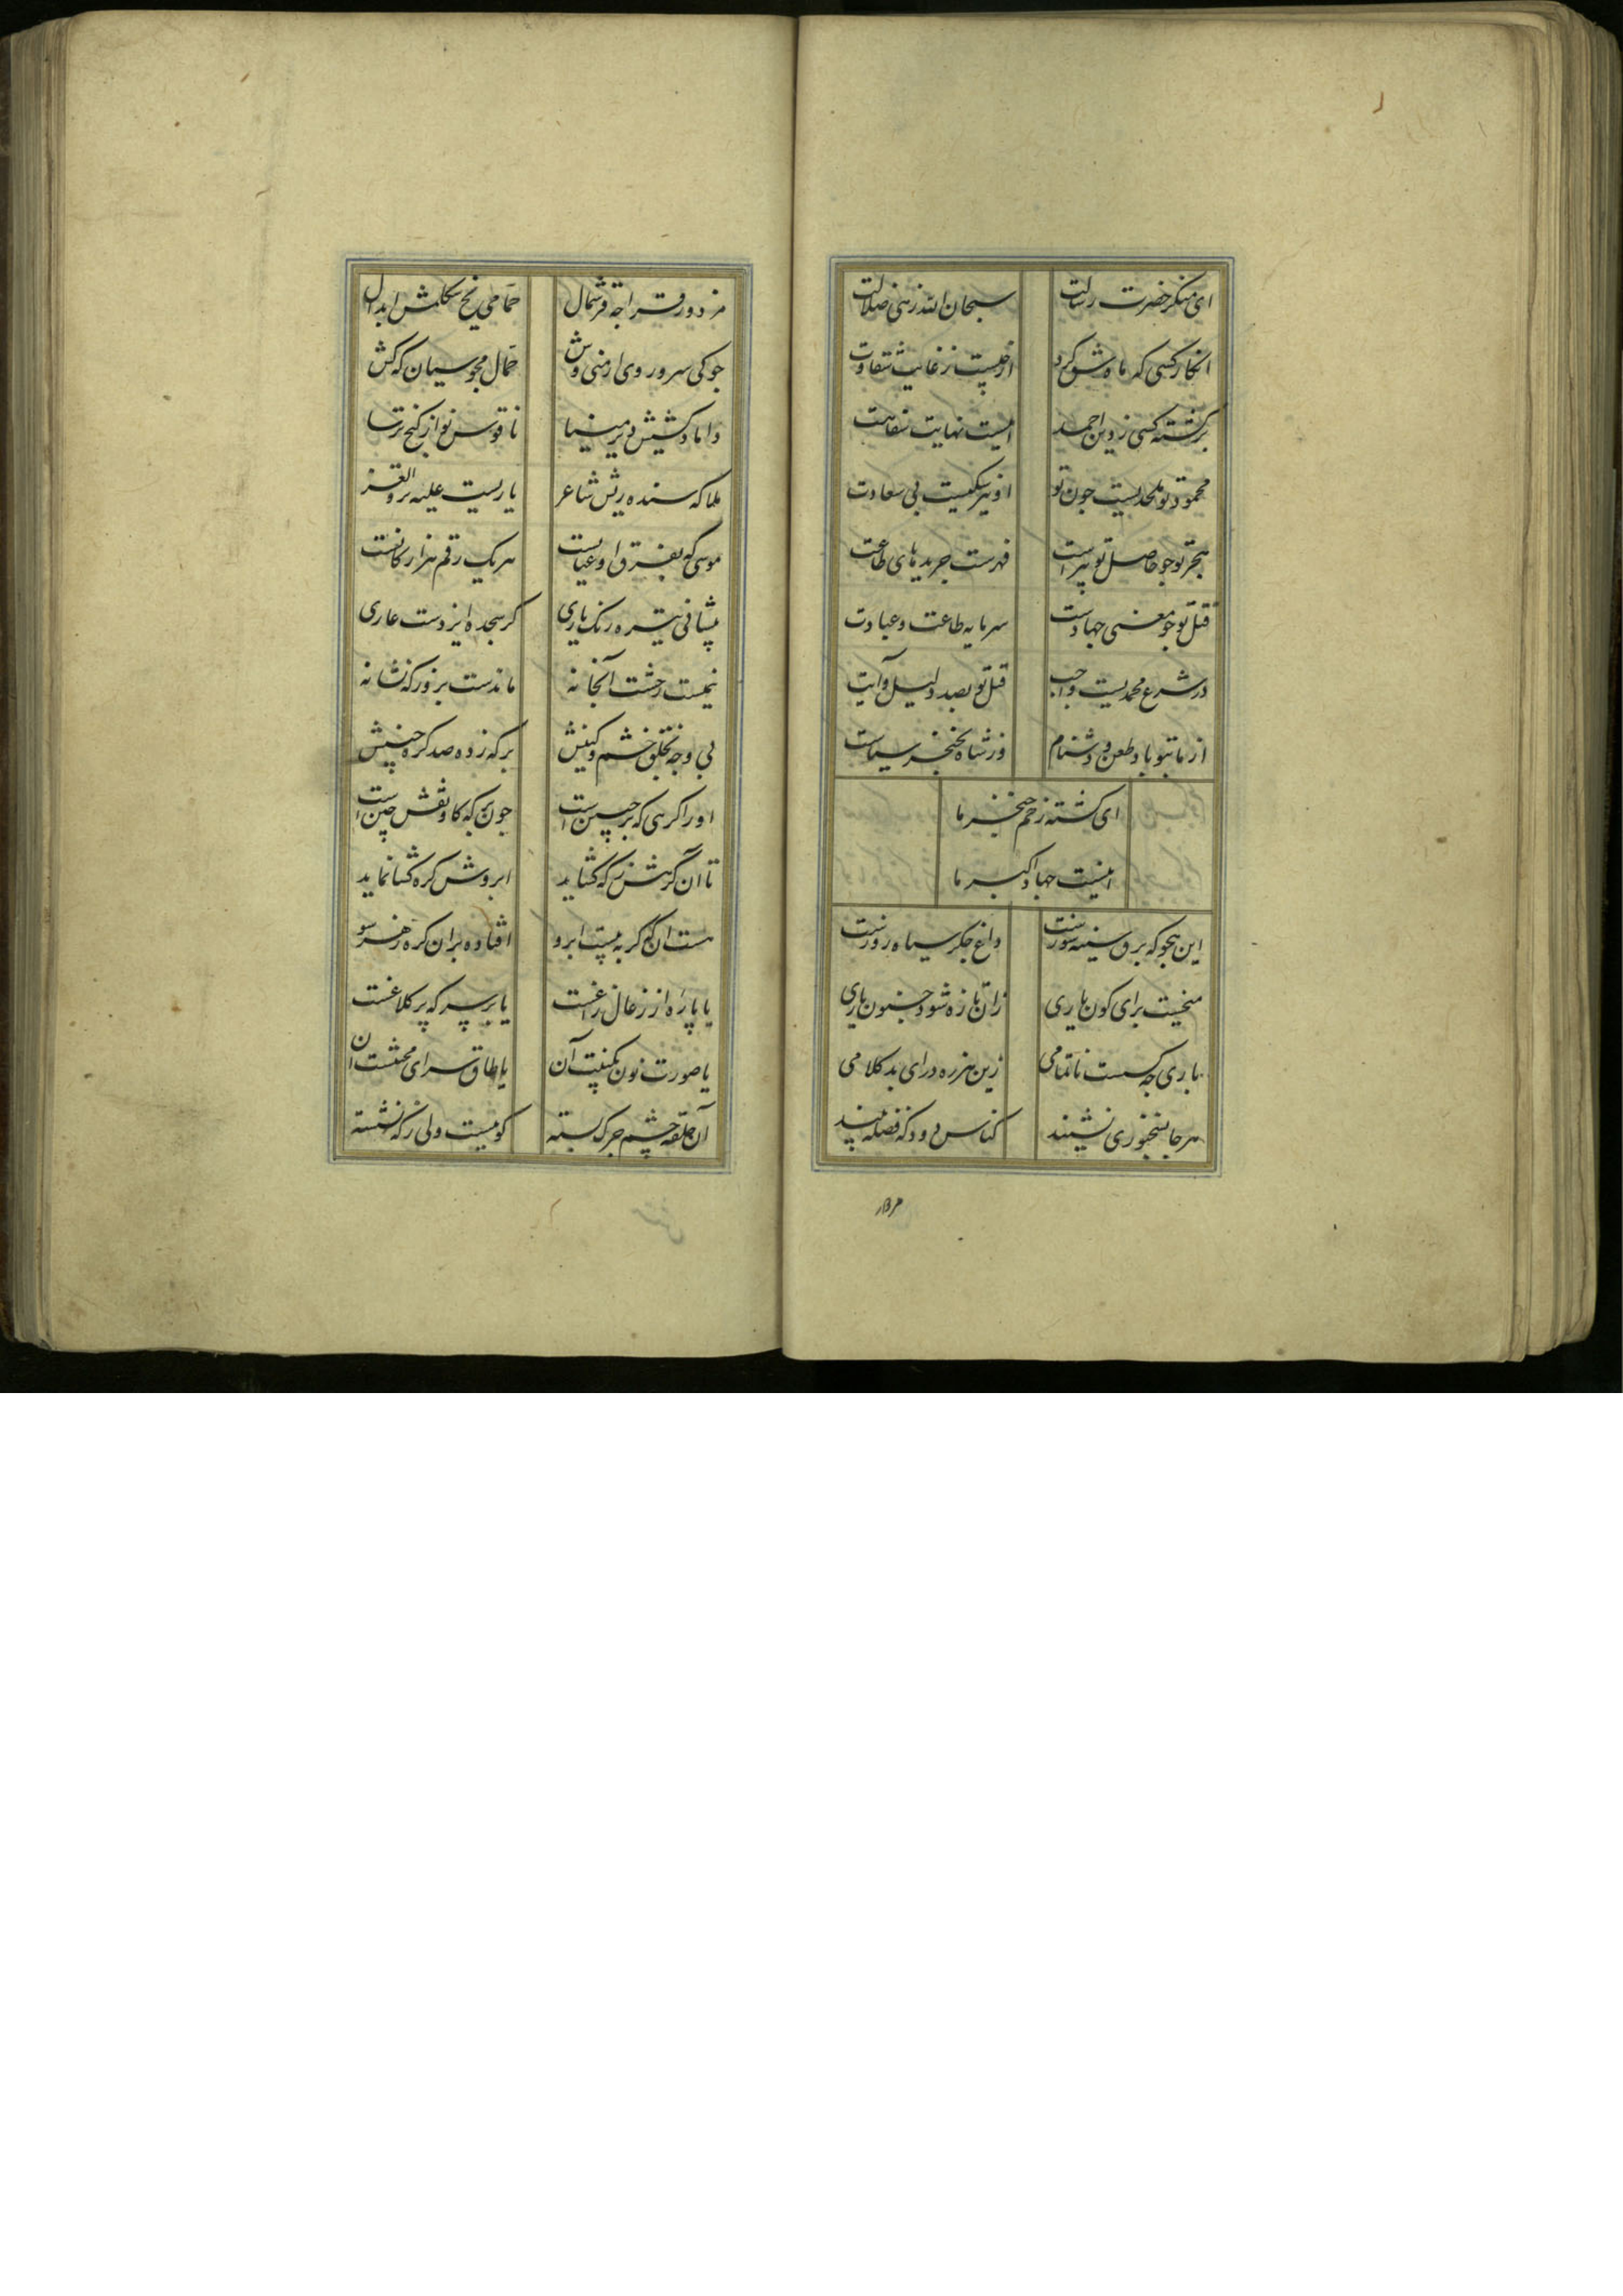 ای منکر حضرت رسالت سبحان الله زهی ضلالت
انکار کسی که ماه شق کرد از چیست ز غایت شقاوت
برگشته کسی ز دین احمد اینست نهایت سفاهت
محمود تو ملحدیست جون تو او نیز سکیست بی سعادت
هجو تو جو حاصل تو بیراست فهرست جریدهای طاعت
قتل تو جو معنی جهادست سرمایه طاعت و عبادت
در شرع محمدیست واجب قتل تو بصد دلیل و آیت
از ما بتو باد طعن و دشنام وز شاه بخنجر سیاست
ای کشته زخم خنجر ما
اینست جهاد اکبر ما
این هجو که برق سینه سوزست داغ جکر سیاه روزست
میخیست برای کون یاری زان تازه شود جنون یاری
یاری جه کسست ناتمامی زین هرزه درای بد کلامی
هر جا بنخوری نشیند کناس دود که فضله چیند
مزدور
مزدور قراجه قرشمال حمامی یخ کلمش ابدال
جوکی سر و روی ارمنی وش حمال مجوسیان که کش
داماد کشیش دیر مینا ناقوس نواز کنج ترسا
ملا که سنده ریش شاعر یاریست علیه
موسی که بفرق او عیانست هر یک رقم هزار کانست
پیشانی تیره رنک یاری کز سجده ایزدست عاری
نیمست ز خشت آنخانه ماندست بزور که نشانه
بی وجه بخلق خشم و کینش بر که زده صد کره جبینش
او را کرهی که بر جبین است جون که کاو نقش چین است
تا آن کرهش ز که کشاید ابروش کره کشا نماید
هست آن که کربه نیست ابرو افتاده بران کره ز هر سو
یا پاره از زغال زاغست یا بر سر که پر کلاغست
یا صورت نون نکبت آن یا طاق سرای محنتست آن
آن حلقه چشم جرک بسته کو نیست ولی ز که نشسته